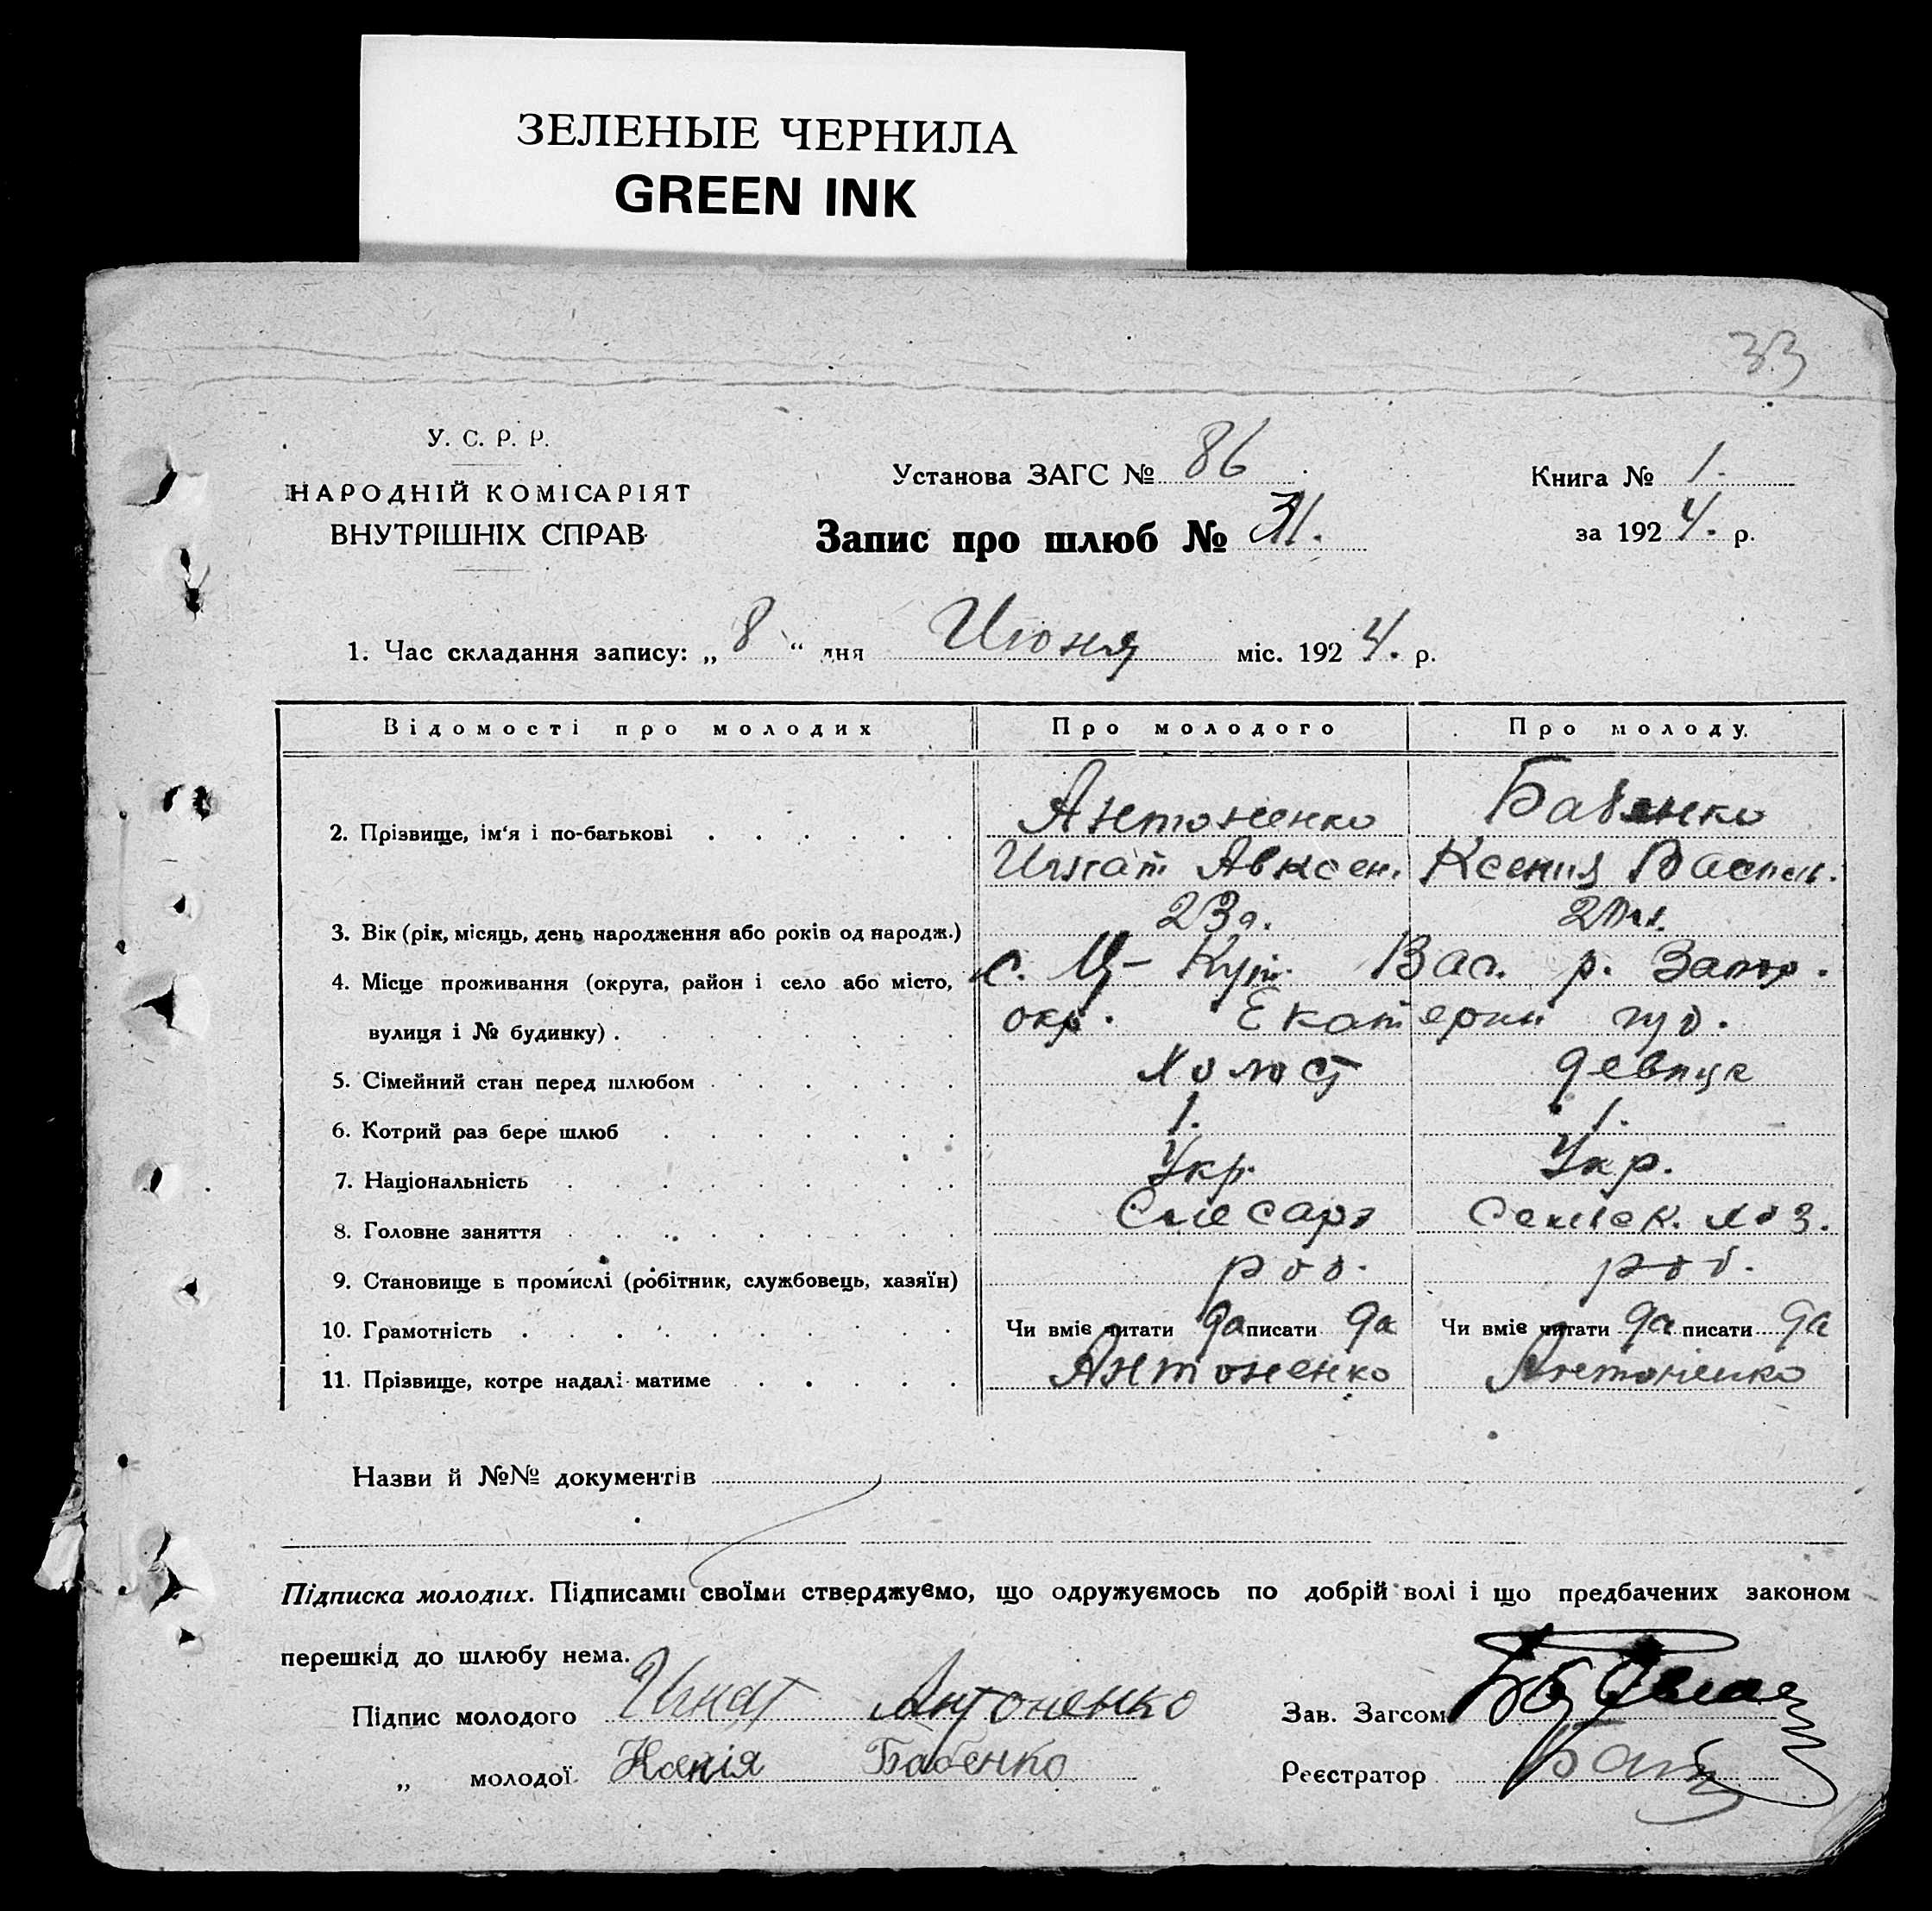 ЗЕЛЕНЫЕ ЧЕРНИЛА
GREEN INK
33
У. С. Р. Р.
НАРОДНІЙ КОМІСАРІЯТ
ВНУТРІШНІХ СПРАВ
Установа ЗАГС № 86
Запис про шлюб № 31.
Книга № 1.
за 1924. р.
1. Час складання запису: „ 8 “ дня Июня міс. 1924. р.
Відомості про молодих Про молодого Про молоду
Антоненко Бабенко
2. Прізвище, ім'я і по-батькові
Игнат Авксен. Ксения Васил.
3. Вік (рік, місяць, день народження або років од народж.) 23 г.
4. Місце проживання (округа, район і село або місто, с. Ц-Кут. Вас. р. Запор.
вулиця і № будинку) окр. Екатерин губ.
5. Сімейний стан перед шлюбом холост девица
6. Котрий раз бере шлюб 1. 1.
7. Національність Укр. Укр.
8. Головне заняття Слесарь Сельск. хоз.
9. Становище в промислі (робітник, службовець, хазяїн) роб. роб.
10. Грамотність Чи вміє читати да писати да Чи вміє читати да писати да
11. Прізвище, котре надалі матиме Антоненко Антоненко
Назви й №№ документів
Підписка молодих. Підписами своїми стверджуємо, що одружуємось по добрій волі і що предбачених законом
перешкід до шлюбу нема.
Підпис молодого Игнат Антоненко Зав. Загсом
„ молодої Ксенія Бабенко Реєстратор